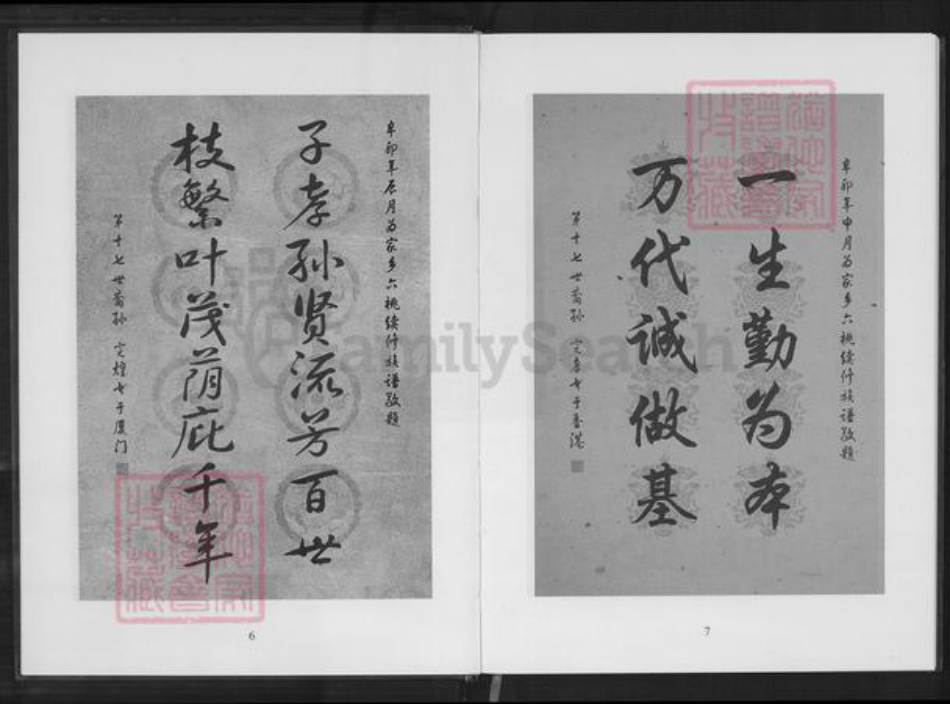 辛卯年申月为家乡六桃续修族谱敬题
一生勤为本
万代诚做基
第十七世裔孙
于香港
7
辛卯年辰月为家乡六桃续修族谱敬题
子孝孙贤流芳百世
枝繁叶茂荫庇千年
第十七世裔孙 定煌书于厦门
6
FamilySearch